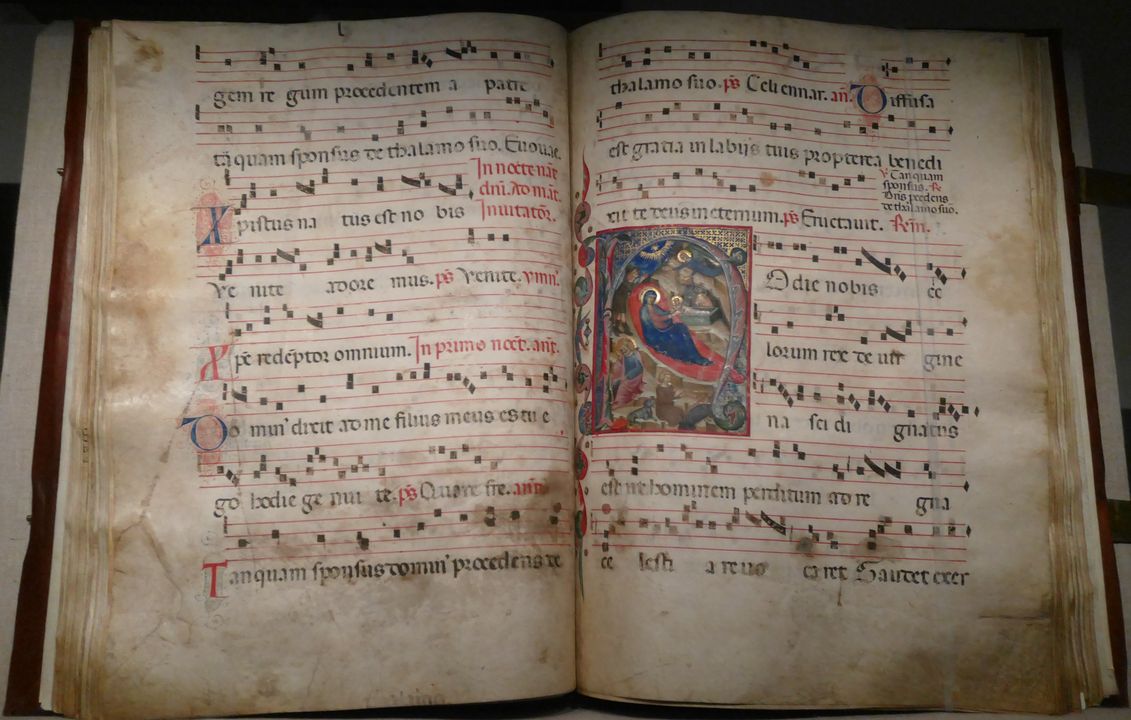 gem re gum procedentem a patre
tāquam sponsus de thalamo suo. Euouae.
In nocte nat̄
dnī. Ad mat̄.
Xpistus na tus est no bis Inuitator̄.
Ve nite adore mus. ps̄ Venite. ymn̄.
Xp̄e redēptor omnium. In primo noct̄. ant̄.
Do min' dixit ad me filius meus es tu e
go hodie ge nui te. ps̄ Quare fre. ant̄
Tanquam sponsus domin' procedens de
thalamo suo. ps̄ Celi ennar. an̄. Diffusa
est gratia in labijs tuis propterea benedi
℣ Tanquam
sponsus. ℟
Dn̄s p̄cedens
de thalamo suo.
xit te deus in eternum. ps̄ Eructauit. Resp̄.
Hodie nobis ce
lorum rex de uir gine
na sci di gnatus
est ut hominem perditum ad re gna
ce lesti a reuo caret Gaudet exer